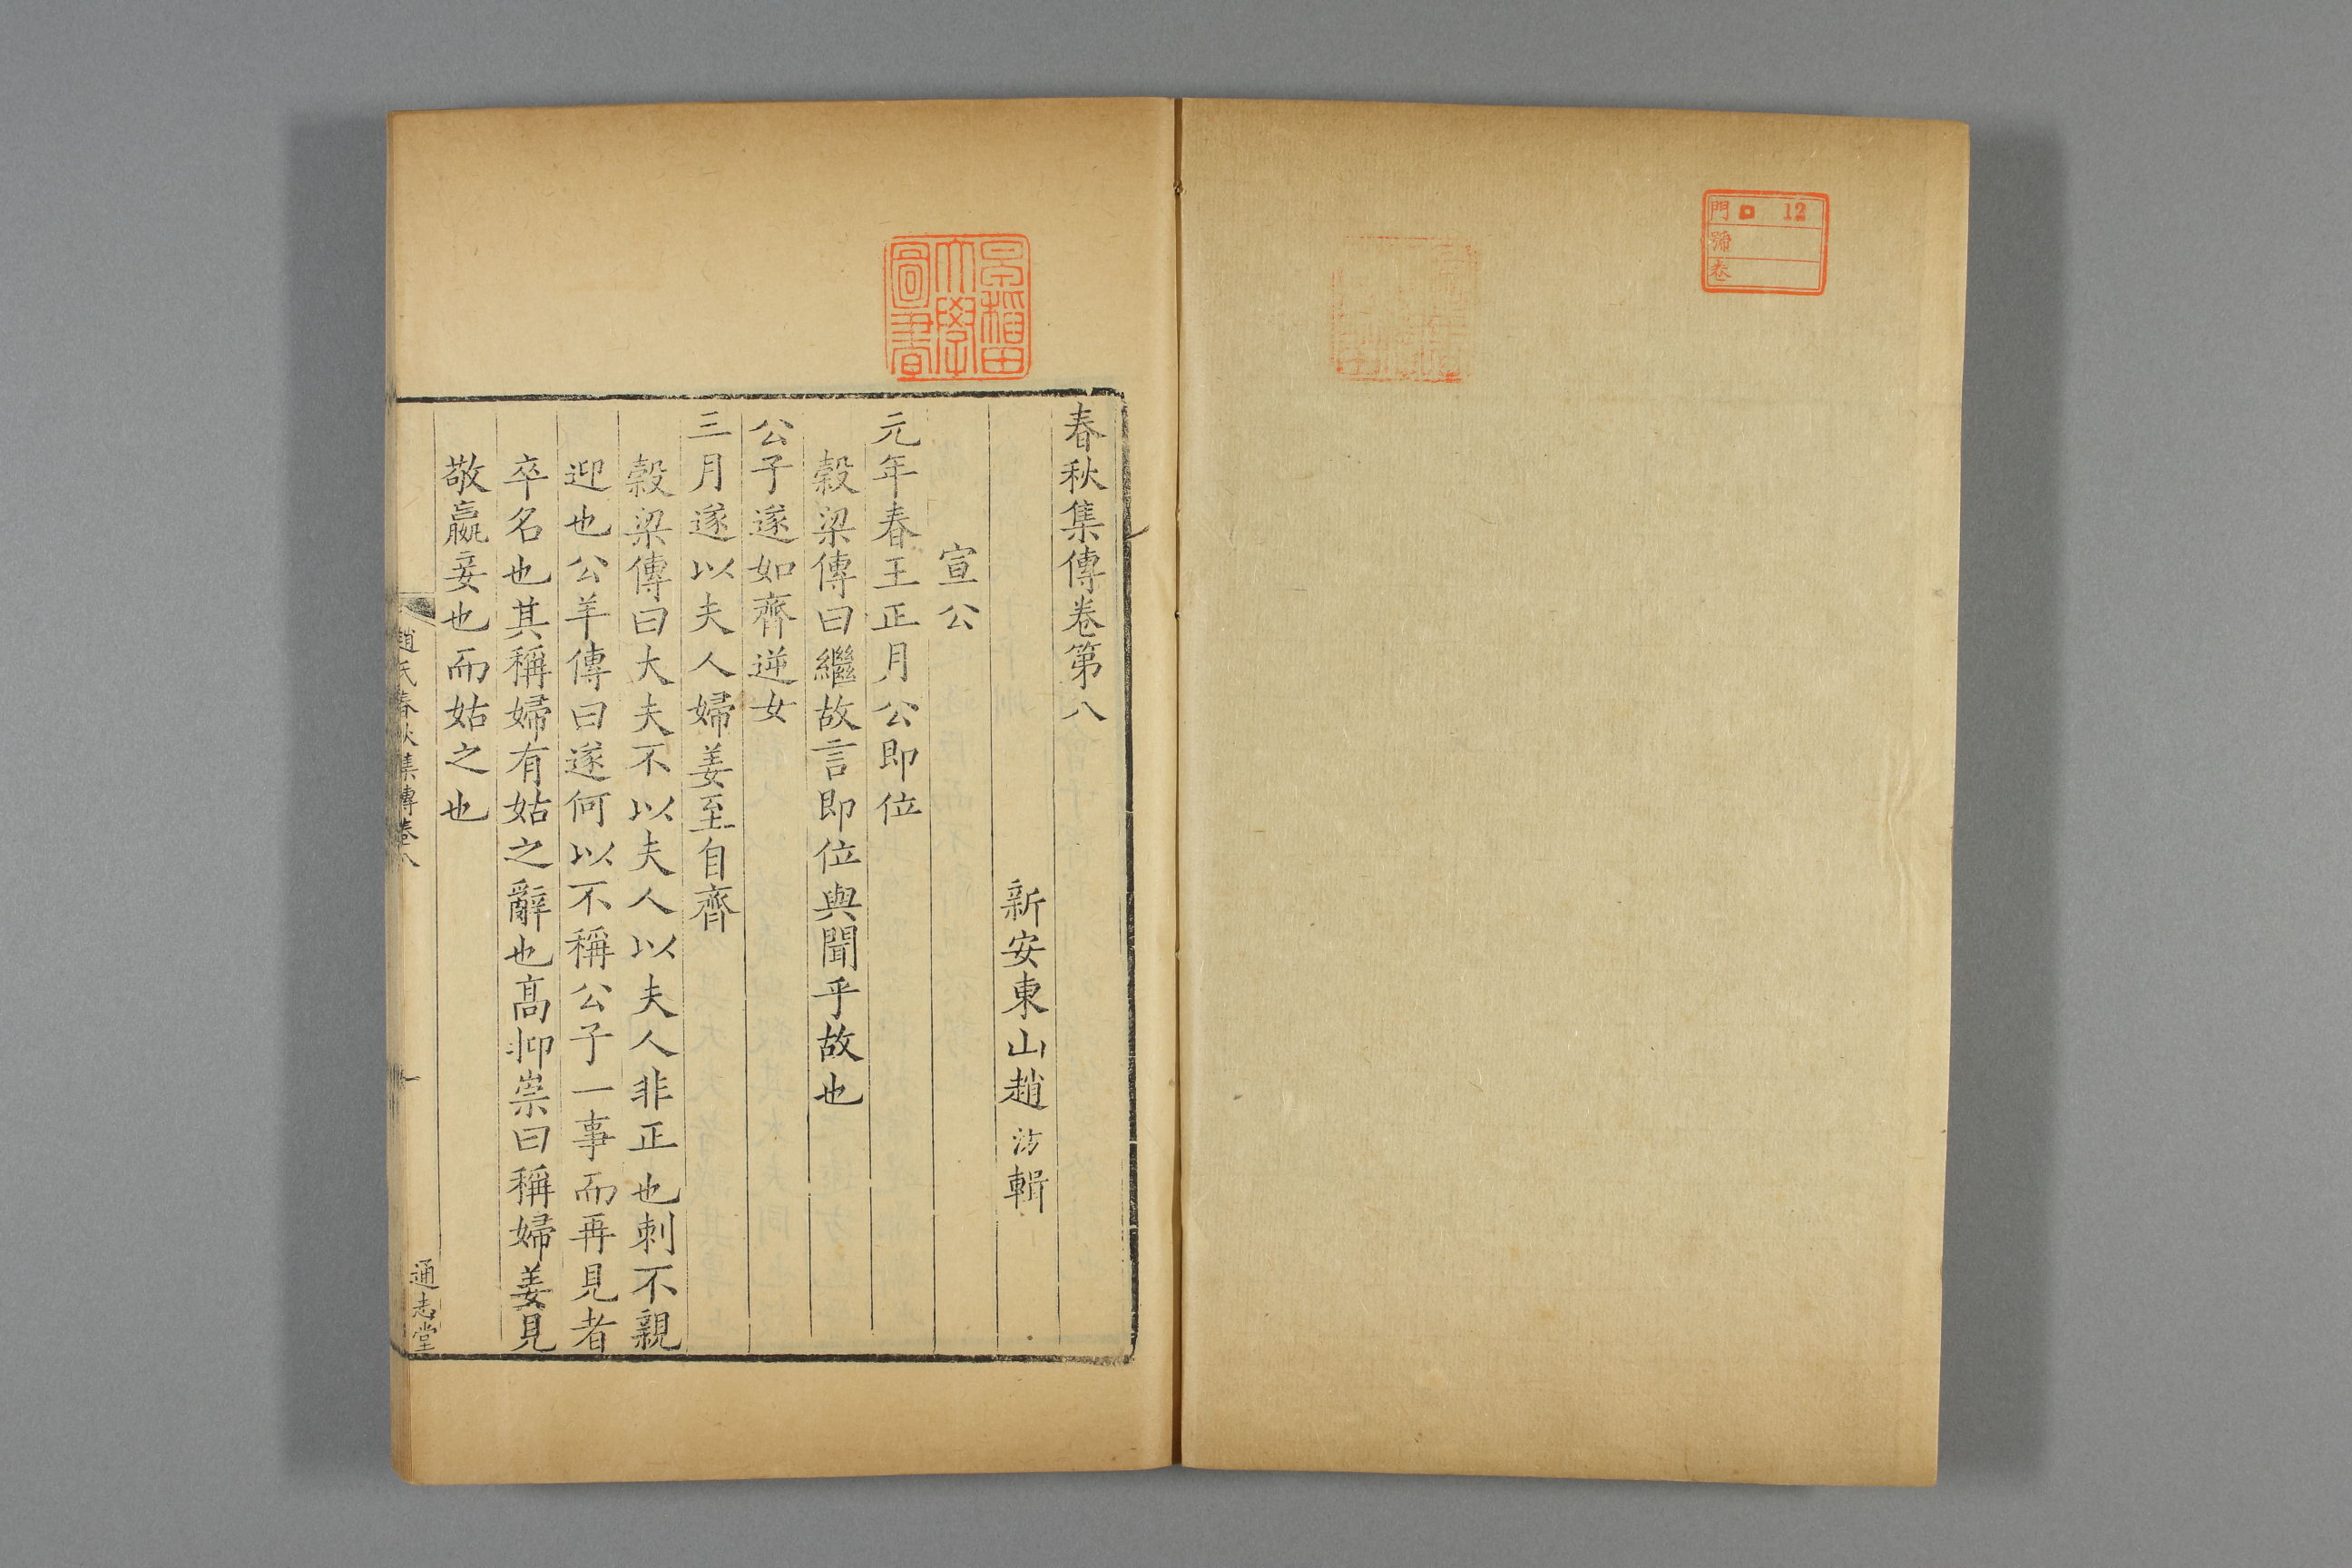 門 ロ 12
號
卷
早稻田
大學
圖書
春秋集傳卷第八
新安東山趙汸輯
宣公
元年春王正月公即位
穀梁傳曰繼故言即位與聞乎故也
公子遂如齊逆女
三月遂以夫人婦姜至自齊
穀梁傳曰大夫不以夫人以夫人非正也刺不親
迎也公羊傳曰遂何以不稱公子一事而再見者
卒名也其稱婦有姑之辭也髙抑崇曰稱婦姜見
敬嬴妾也而姑之也
趙氏春秋集傳卷八 一 通志堂